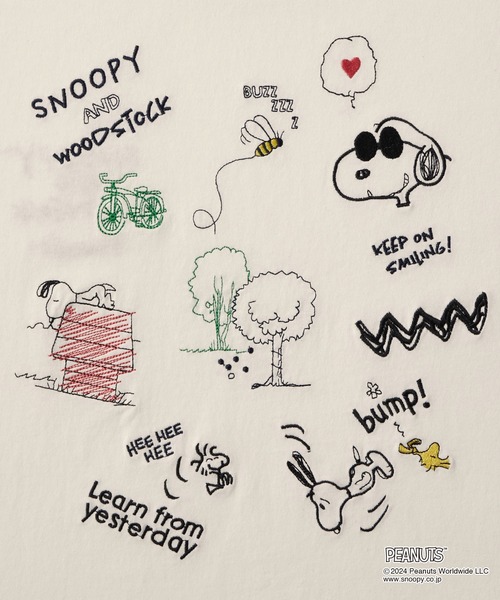 SNOOPY
AND
WOODSTOCK
BUZZ
ZZZ
Z
KEEP ON
SMILING!
bump!
HEE HEE
HEE
Learn from
yesterday
PEANUTS™
©2024 Peanuts Worldwide LLC
www.snoopy.co.jp